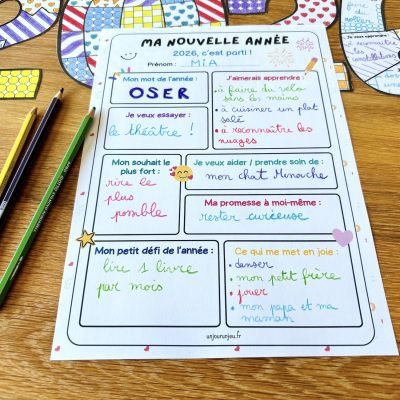 MA NOUVELLE ANNÉE
2026, c'est parti !
Prénom : MiA
Mon mot de l'année :
OSER
J'aimerais apprendre :
à faire du vélo
sans les mains
à cuisiner un plat
salé
à reconnaître les
nuages
Je veux essayer :
le théâtre !
Mon souhait le
plus fort :
rire le
plus
possible
Je veux aider / prendre soin de :
mon chat Minoche
Ma promesse à moi-même :
rester curieuse
Mon petit défi de l'année :
lire 1 livre
par mois
Ce qui me met en joie :
danser
mon petit frère
jouer
mon papa et ma
maman
unjourunjeu.fr